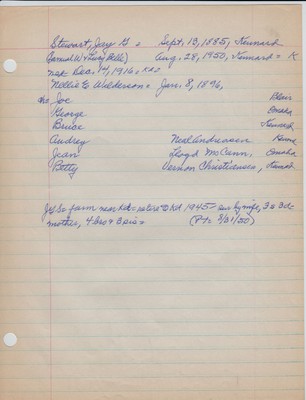 Stewart, Jay G = Sept. 13, 1885, Kennard
(Samuel W & Lucy Belle) Aug. 28, 1950, Kennard = K
md Dec. 14, 1916, Kd
Nellie E Wilderson = Jan. 8, 1896,
ch: Joe Blair
George Omaha
Bruce Kennard
Audrey Neal Andreasen Kennard
Jean Lloyd McCann, Omaha
Betty Vernon Christiansen, Kennard
JGS = farm near Kd = retire to Kd 1945 = sur by wife, 3s 3d
mother, 4 bro & 3 sis = (PT = 8/31/50)